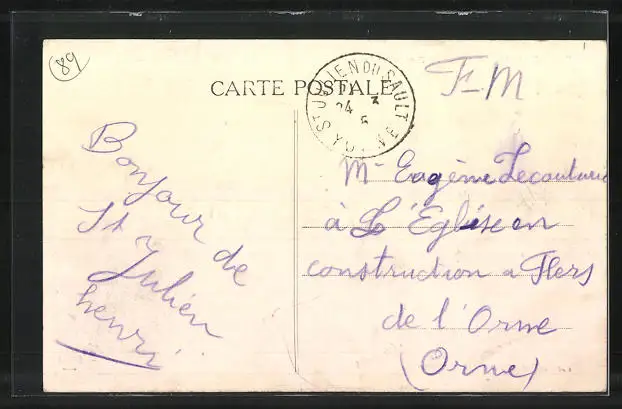 89
CARTE POSTALE
ST JULIEN DU SAULT
YONNE
24 3
5
F-M
Bonjour de
St Julien
henri
Mr Eugène Lecouturier
à L'Eglise en
construction a Flers
de l'Orne
(Orne)